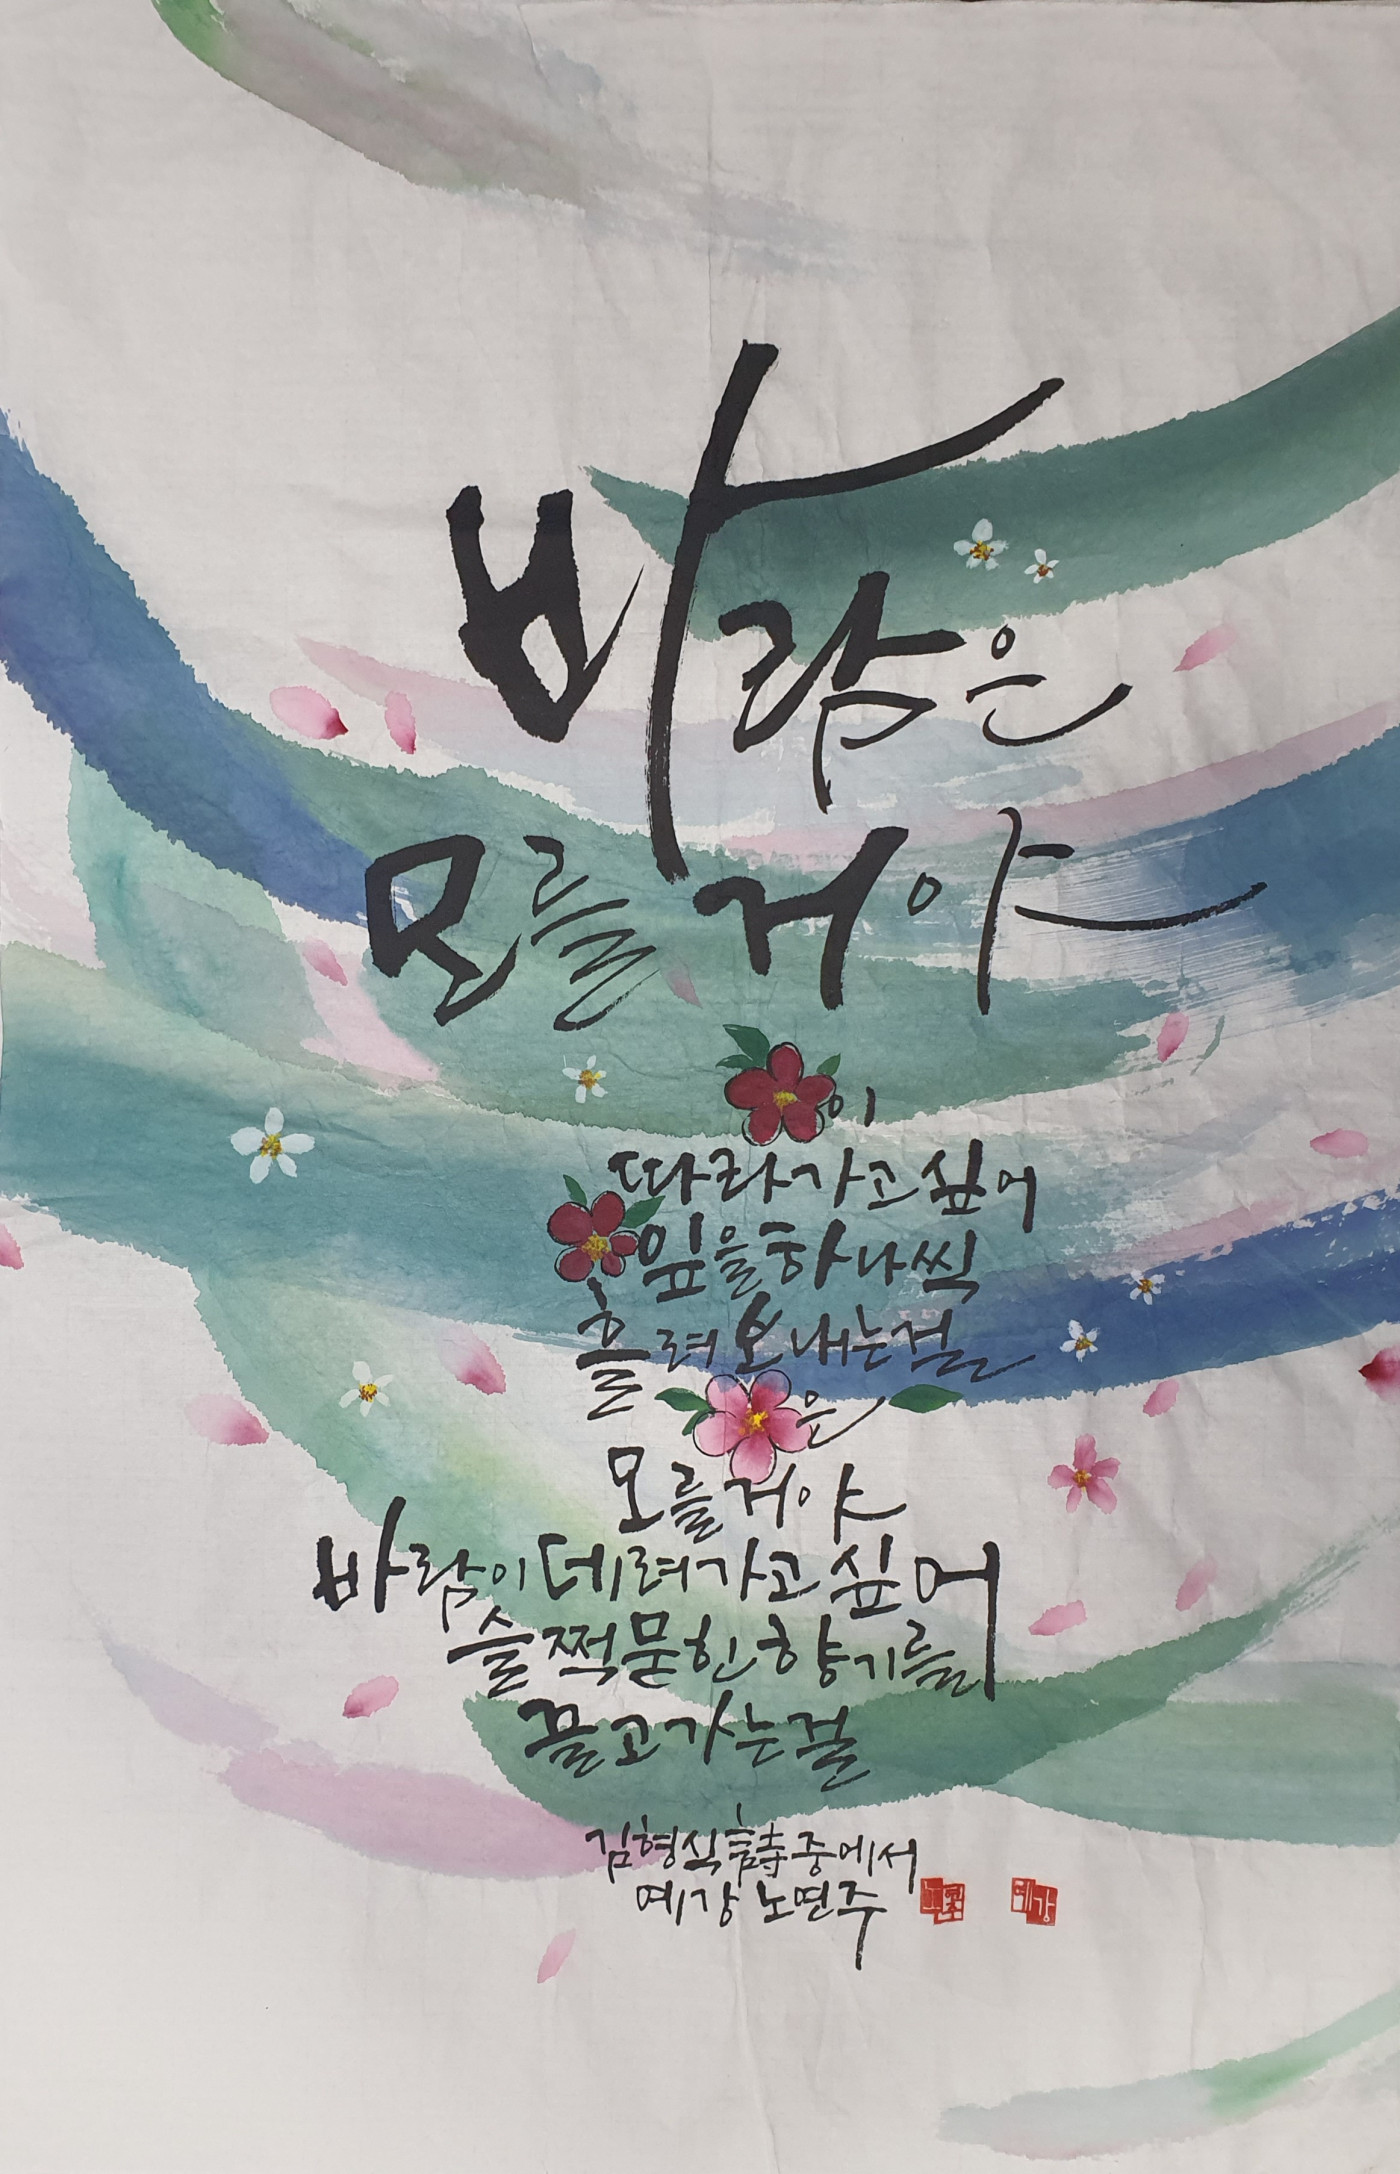 바람은
모를거야
이
따라가고싶어
잎을하나씩
흘려보내는걸
은
모를거야
바람이데려가고싶어
슬쩍묻힌향기를
끌고가는걸
김형식詩중에서
예강노연주
예강